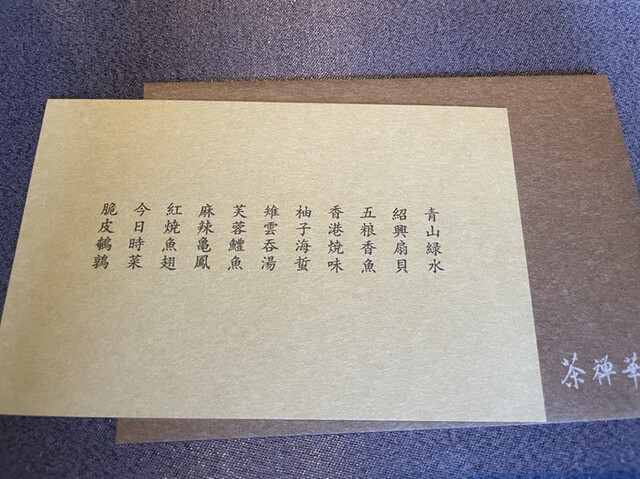 青山緑水
紹興扇貝
五粮香魚
香港焼味
柚子海蜇
雉雲吞湯
芙蓉鱧魚
麻辣亀鳳
紅焼魚翅
今日時菜
脆皮鵪鶉
茶禅華